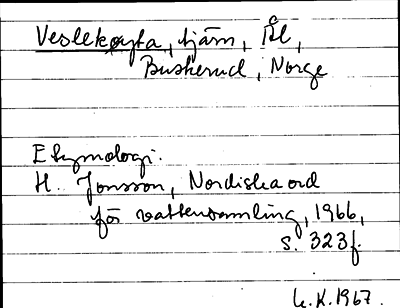 Veslekøyta, tjärn, Ål,
Buskerud, Norge
Etymologi.
H. Jonsson, Nordiska ord
för vattensamling, 1966,
s. 323f.
1967.